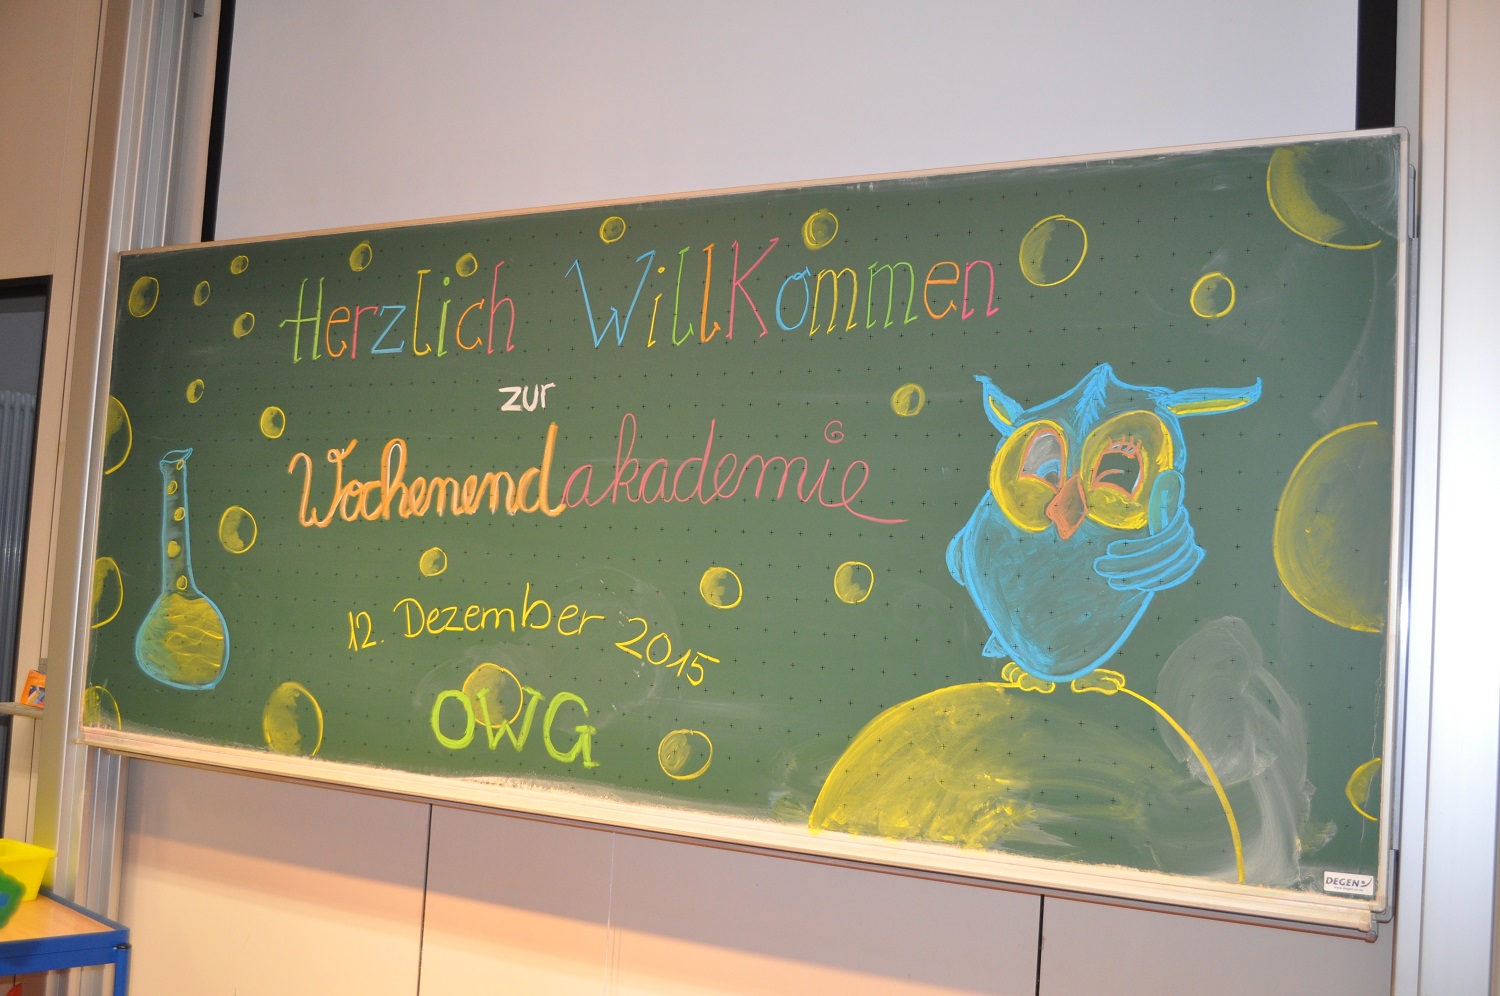 Herzlich WillKommen
zur
Wochenendakademie
12. Dezember 2015
OWG
DEGEN